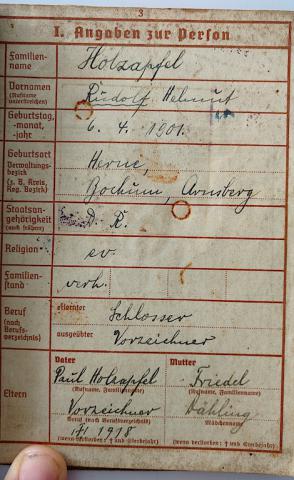 3
I. Angaben zur Person
Familien-
name
Holzapfel
Vornamen
(Rufname
unterstreichen)
Rudolf Helmut
Geburtstag,
-monat,
-jahr
6. 4. 1901.
Geburtsort
Verwaltungs-
bezirk
(z. B. Kreis,
Reg. Bezirk)
Herne,
Bochum, Arnsberg
Staatsan-
gehörigkeit
(auch frühere)
D. R.
Religion
ev.
Familien-
stand
verh.
Beruf
(nach
Berufs-
verzeichnis)
erlernter
Schlosser
ausgeübter
Vorzeichner
Eltern
Vater
Paul Holzapfel
(Rufname, Familienname)
Vorzeichner
Beruf (nach Berufsverzeichnis)
1918
(wenn verstorben: † und Sterbejahr)
Mutter
Friedel
(Rufname, Familienname)
Mädchenname
(wenn verstorben: † und Sterbejahr)